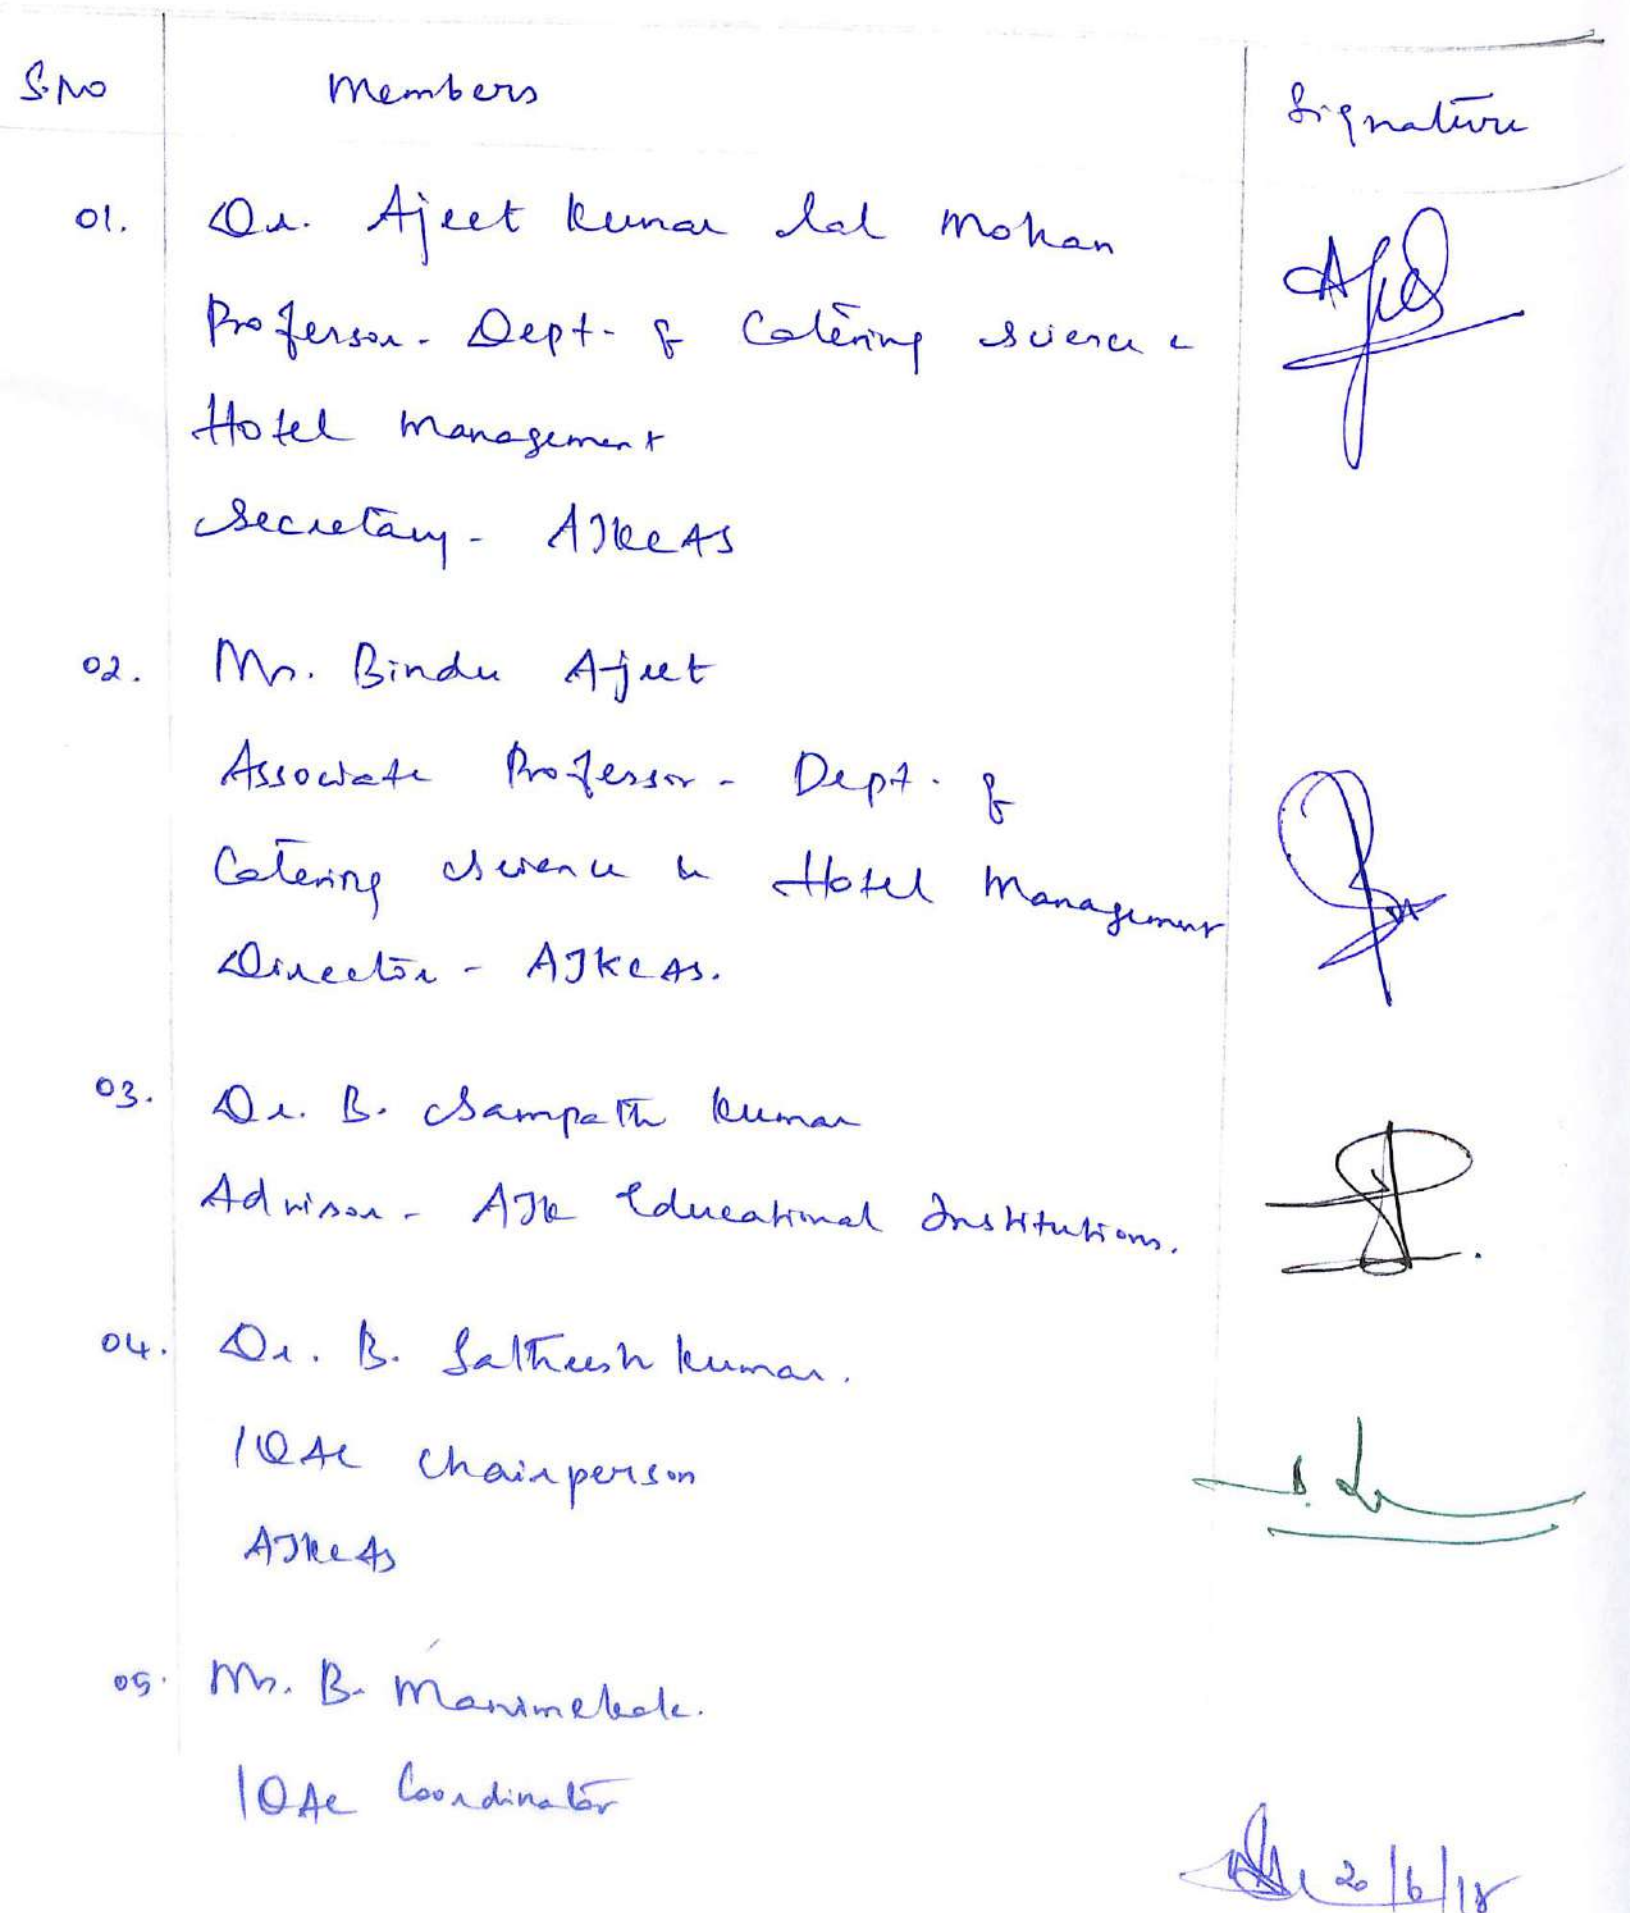 S.No Members Signature
01. Dr. Ajeet Kumar Lal Mohan
Professor - Dept. of Catering Science &
Hotel Management
Secretary - AJKCAS
02. Mrs. Bindu Ajeet
Associate Professor - Dept. of
Catering Science & Hotel Management
Director - AJKCAS.
03. Dr. B. Sampath Kumar
Advisor - AJK Educational Institutions.
04. Dr. B. Satheesh Kumar.
IQAC Chairperson
AJKCAS
05. Mrs. B. Manimekala.
IQAC Coordinator
20/6/18